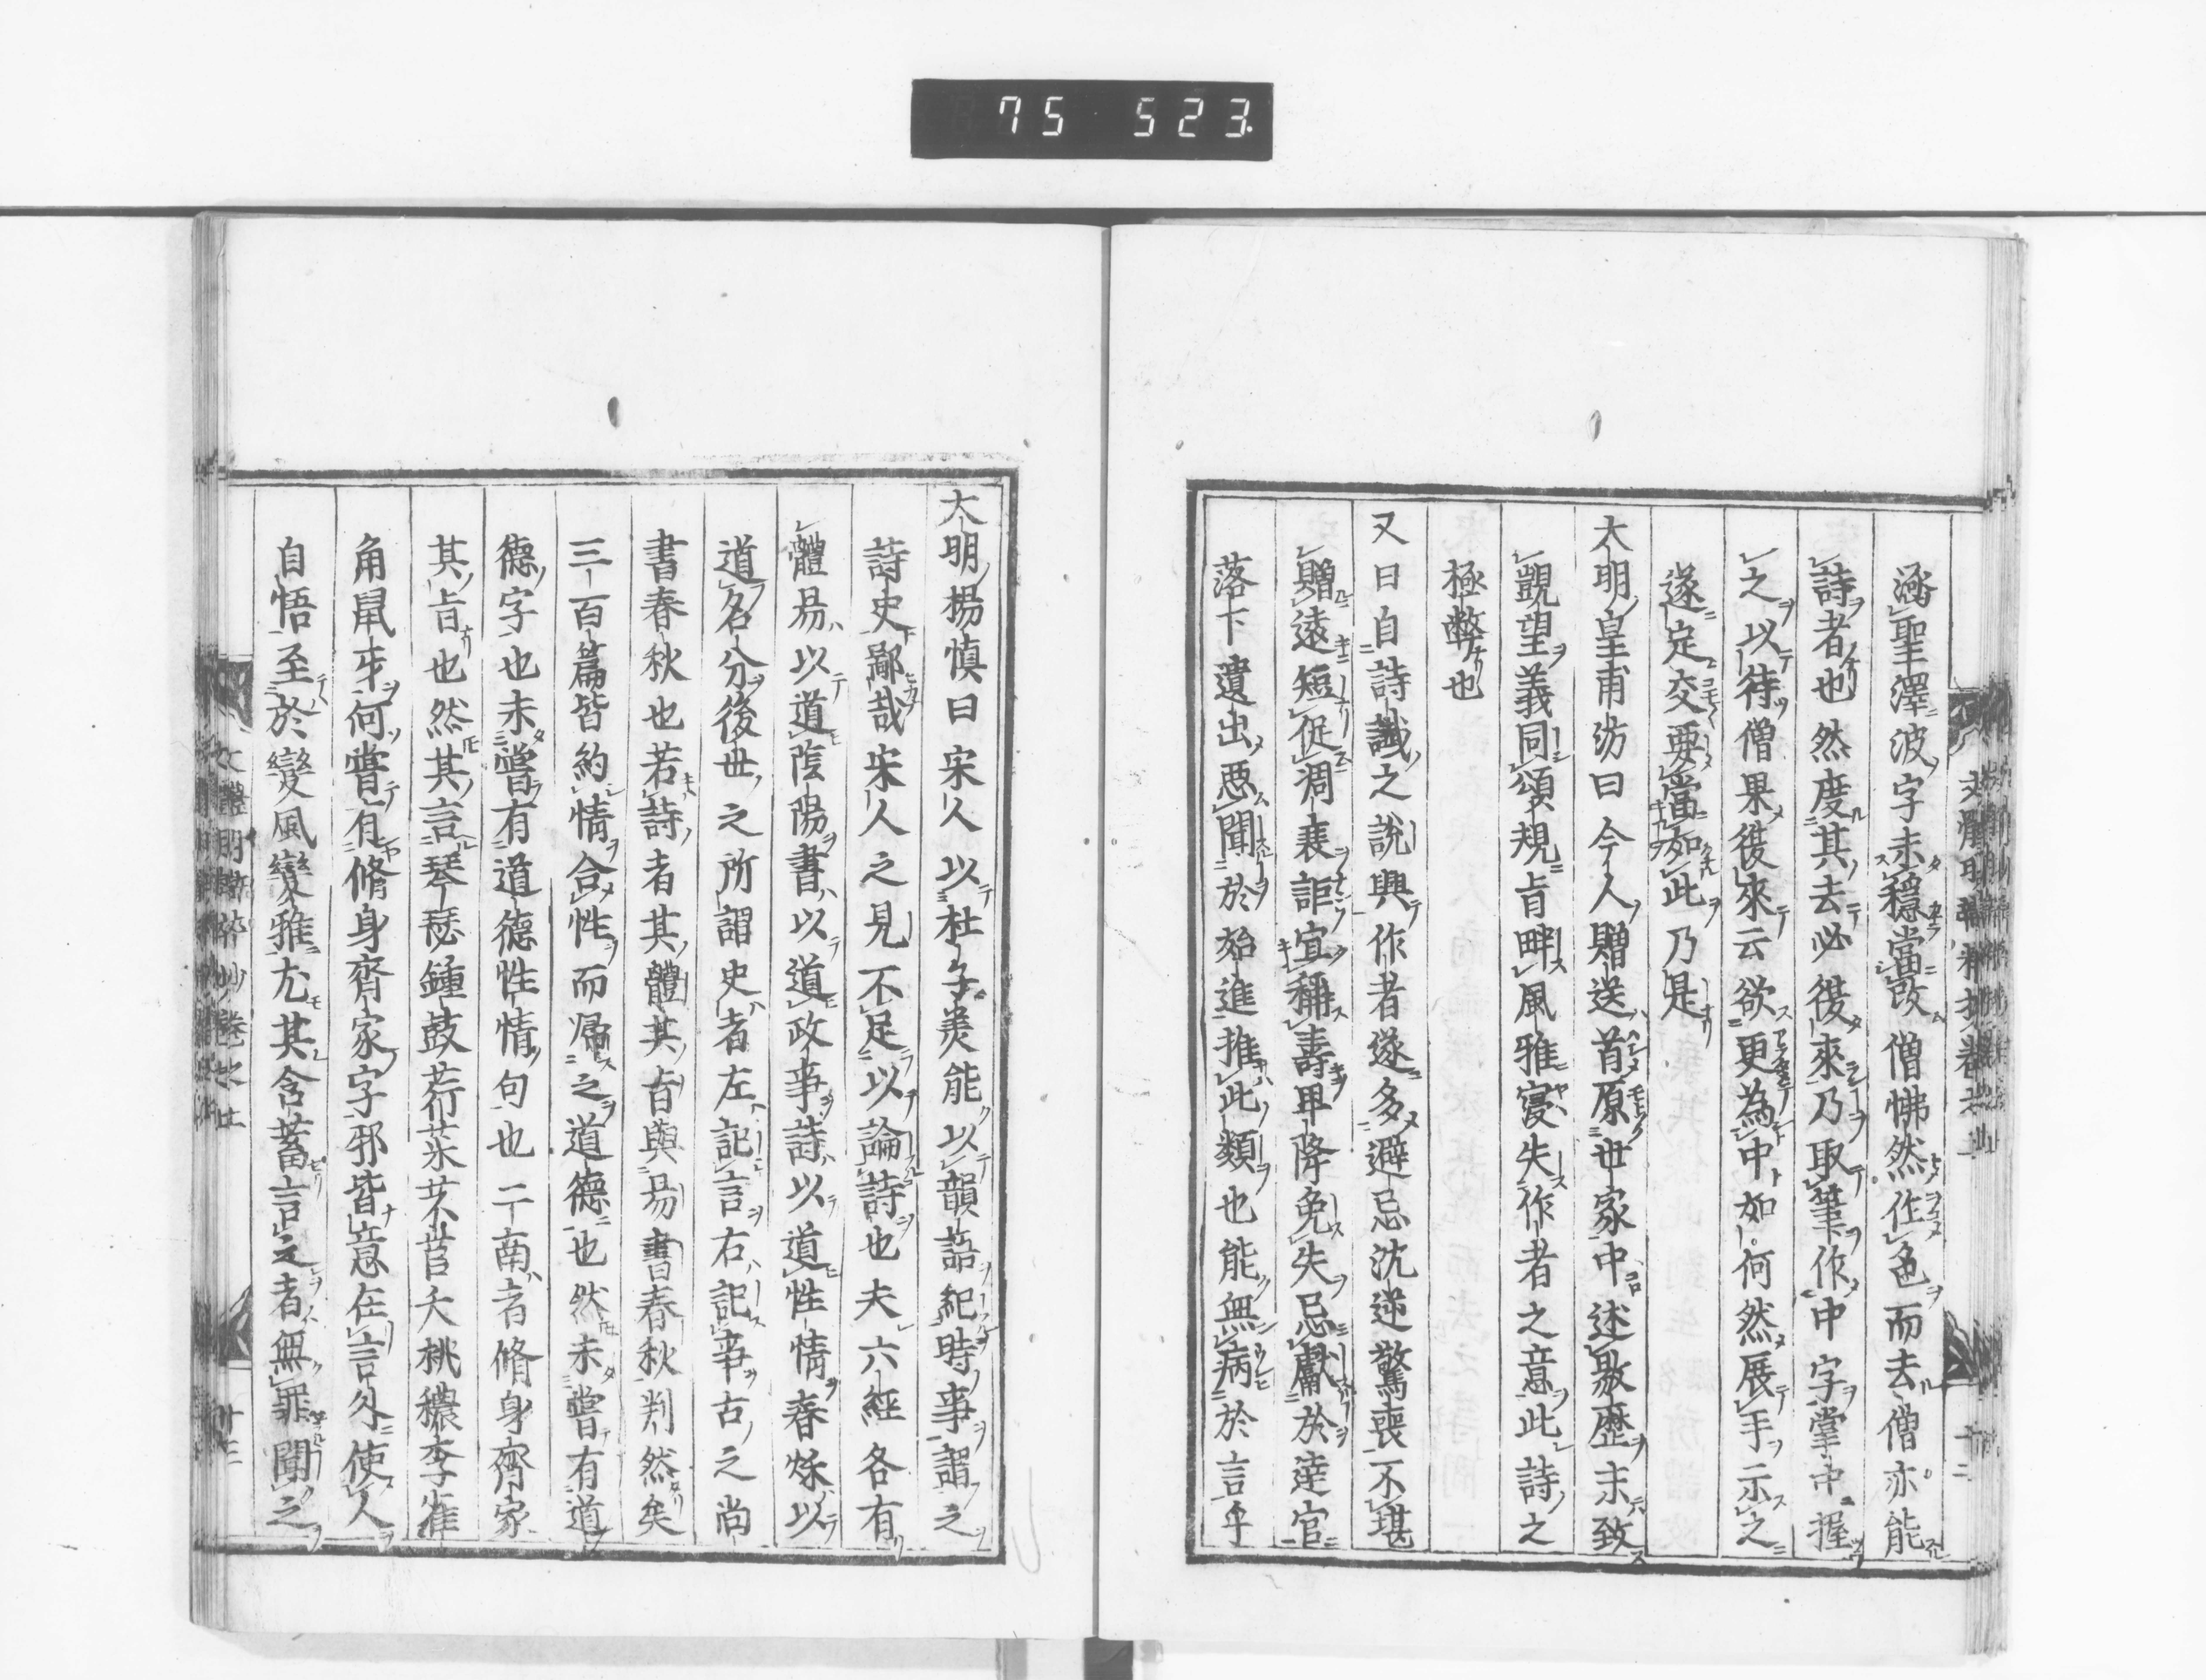 75 523
涵聖澤波字未穩當改僧怫然作色而去僧亦能
詩者也然度其去必復來乃取筆作中字掌中握
之以待僧果復來云欲更為中如何然展手示之
遂定交要當如此乃是
大明皇甫汸曰今人贈送首原世家中述敭歷末致
覬望義同頌規旨畔風雅寖失作者之意此詩之
極弊也
又曰自詩讖之說興作者遂多避忌沈逆驚喪不堪
贈遠短促凋衰詎宜稱壽卑降免失忌獻於達官
落下遺出惡聞於始進推此類也能無病於言乎
大明楊慎曰宋人以杜子美能以韻語紀時事謂之
詩史鄙哉宋人之見不足以論詩也夫六經各有
體易以道陰陽書以道政事詩以道性情春秋以
道名分後世之所謂史者左記言右記事古之尚
書春秋也若詩者其體其旨與易書春秋判然矣
三百篇皆約情合性而歸之道德也然未嘗有道
德字也未嘗有道德性情句也二南者脩身齊家
其旨也然其言琴瑟鍾鼓荇菜芣苢夭桃穠李雀
角鼠牙何嘗有脩身齊家字邪皆意在言外使人
自悟至於變風變雅尤其含蓄言之者無罪聞之